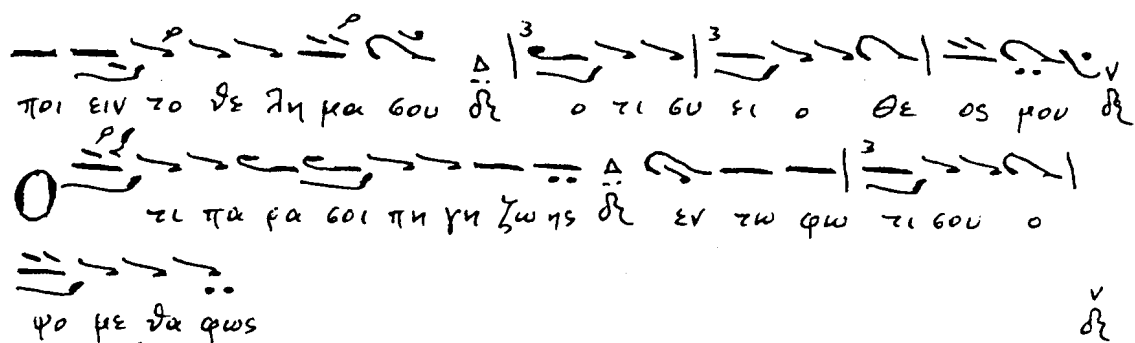 ποι ειν το θε λη μα σου Δ δι ο τι συ ει ο Θε ος μου ν δι
Ο τι πα ρα σοι πη γη ζω ης Δ δι εν τω φω τι σου ο
ψο με θα φως ν δι